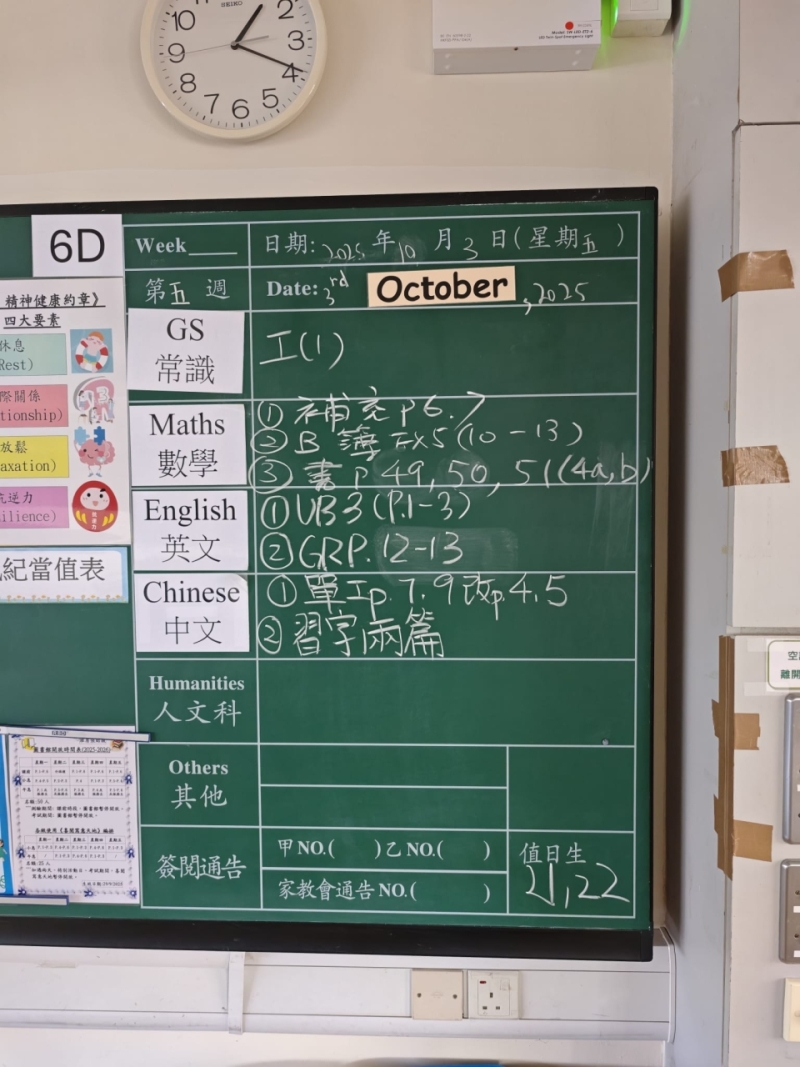 SEIKO
10
9
8
7
6
5
4
3
2
6D
Week
日期: 2025 年 10 月 3 日(星期五)
第五週
Date: 3rd October, 2025
精神健康約章》
四大要素
休息
Rest)
際關係
tionship)
放鬆
axation)
抗逆力
ilience)
紀當值表
GS
常識
工(1)
Maths
數學
① 補充 p 6.7
② B 簿 Ex5 (10-13)
③ 書 p 49, 50, 51(4a,b)
English
英文
① UB3 (P.1-3)
② GRP. 12-13
Chinese
中文
① 單工p. 7.9 改p.4.5
② 習字兩篇
Humanities
人文科
Others
其他
簽閱通告
甲NO.( )乙NO.( )
家教會通告NO.( )
值日生
21,22
圖書館開放時間表(2025-2026)
離開